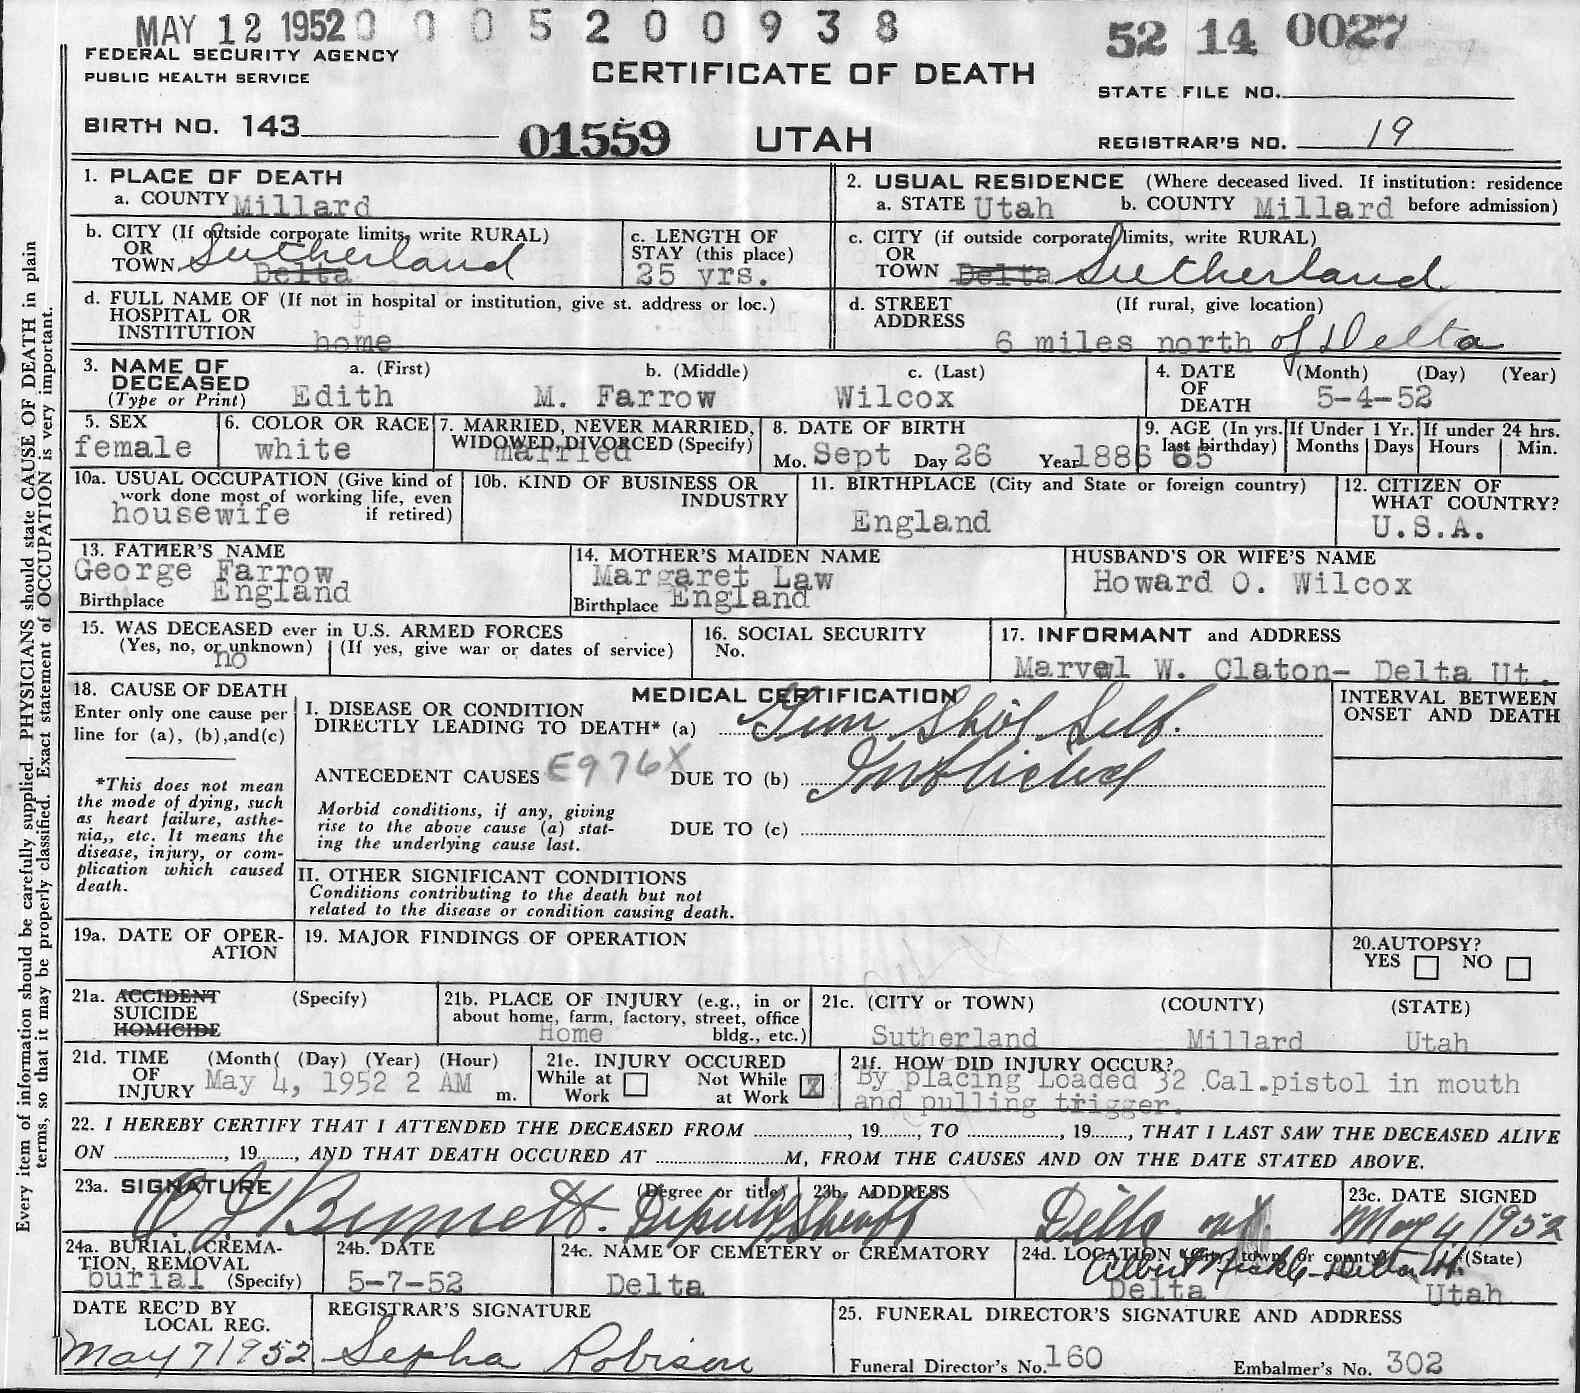 MAY 12 1952 0 0 0 5 2 0 0 9 3 8
52 14 0027
FEDERAL SECURITY AGENCY
PUBLIC HEALTH SERVICE
CERTIFICATE OF DEATH
STATE FILE NO.
BIRTH NO. 143
01559 UTAH
REGISTRAR'S NO. 19
Every item of information should be carefully supplied. PHYSICIANS should state CAUSE OF DEATH in plain
terms, so that it may be properly classified. Exact statement of OCCUPATION is very important.
1. PLACE OF DEATH
a. COUNTY Millard
2. USUAL RESIDENCE (Where deceased lived. If institution: residence
a. STATE Utah b. COUNTY Millard before admission)
b. CITY (If outside corporate limits, write RURAL)
OR
TOWN Sutherland
Delta
c. LENGTH OF
STAY (this place)
25 yrs.
c. CITY (if outside corporate limits, write RURAL)
OR
TOWN Delta Sutherland
d. FULL NAME OF (If not in hospital or institution, give st. address or loc.)
HOSPITAL OR
INSTITUTION
home
d. STREET (If rural, give location)
ADDRESS
6 miles north of Delta
3. NAME OF a. (First) b. (Middle) c. (Last)
DECEASED
(Type or Print) Edith M. Farrow Wilcox
4. DATE (Month) (Day) (Year)
OF
DEATH 5-4-52
5. SEX
female
6. COLOR OR RACE
white
7. MARRIED, NEVER MARRIED,
WIDOWED, DIVORCED (Specify)
married
8. DATE OF BIRTH
Mo. Sept Day 26 Year 1886
9. AGE (In yrs.
last birthday)
65
If Under 1 Yr.
Months Days
If under 24 hrs.
Hours Min.
10a. USUAL OCCUPATION (Give kind of
work done most of working life, even
housewife if retired)
10b. KIND OF BUSINESS OR
INDUSTRY
11. BIRTHPLACE (City and State or foreign country)
England
12. CITIZEN OF
WHAT COUNTRY?
U.S.A.
13. FATHER'S NAME
George Farrow
Birthplace England
14. MOTHER'S MAIDEN NAME
Margaret Law
Birthplace England
HUSBAND'S OR WIFE'S NAME
Howard O. Wilcox
15. WAS DECEASED ever in U.S. ARMED FORCES
(Yes, no, or unknown) (If yes, give war or dates of service)
no
16. SOCIAL SECURITY
No.
17. INFORMANT and ADDRESS
W. Claton- Delta Ut.
18. CAUSE OF DEATH
Enter only one cause per
line for (a), (b),and(c)
*This does not mean
the mode of dying, such
as heart failure, asthe-
nia,, etc. It means the
disease, injury, or com-
plication which caused
death.
MEDICAL CERTIFICATION
I. DISEASE OR CONDITION
DIRECTLY LEADING TO DEATH* (a) Gun Shot Self.
ANTECEDENT CAUSES E976X DUE TO (b) Inflicted
Morbid conditions, if any, giving
rise to the above cause (a) stat-
ing the underlying cause last.
DUE TO (c)
INTERVAL BETWEEN
ONSET AND DEATH
II. OTHER SIGNIFICANT CONDITIONS
Conditions contributing to the death but not
related to the disease or condition causing death.
19a. DATE OF OPER-
ATION
19. MAJOR FINDINGS OF OPERATION
20.AUTOPSY?
YES NO
21a. ACCIDENT (Specify)
SUICIDE
HOMICIDE
21b. PLACE OF INJURY (e.g., in or
about home, farm, factory, street, office
Home bldg., etc.)
21c. (CITY or TOWN) (COUNTY) (STATE)
Sutherland Millard Utah
21d. TIME (Month( (Day) (Year) (Hour)
OF
INJURY May 4, 1952 2 AM m.
21e. INJURY OCCURED
While at Work Not While at Work X
21f. HOW DID INJURY OCCUR?
By placing Loaded 32 Cal.pistol in mouth
and pulling trigger.
22. I HEREBY CERTIFY THAT I ATTENDED THE DECEASED FROM , 19 , TO , 19 , THAT I LAST SAW THE DECEASED ALIVE
ON , 19 , AND THAT DEATH OCCURED AT M, FROM THE CAUSES AND ON THE DATE STATED ABOVE.
23a. SIGNATURE (Degree or title)
Deputy Sheriff
23b. ADDRESS
Delta ut.
23c. DATE SIGNED
May 4, 1952
24a. BURIAL, CREMA-
TION, REMOVAL
burial (Specify)
24b. DATE
5-7-52
24c. NAME OF CEMETERY or CREMATORY
Delta
24d. LOCATION (City, town, or county) (State)
Delta Utah
DATE REC'D BY
LOCAL REG.
May 7 1952
REGISTRAR'S SIGNATURE
Sepha Robison
25. FUNERAL DIRECTOR'S SIGNATURE AND ADDRESS
Funeral Director's No. 160 Embalmer's No. 302